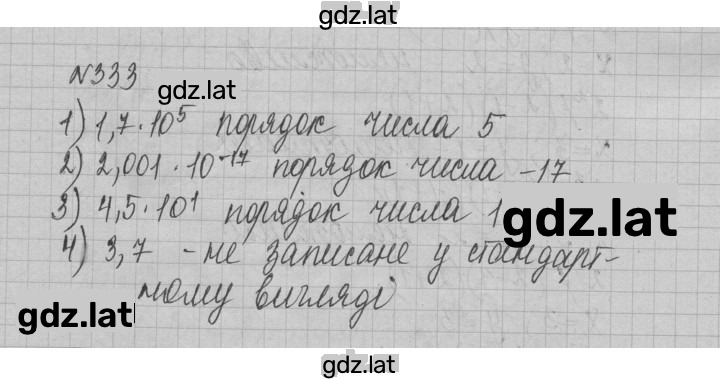 gdz.lat
№333
gdz.lat
1) 1,7·10⁵ порядок числа 5
2) 2,001·10⁻¹⁷ порядок числа -17
3) 4,5·10¹ порядок числа 1
gdz.lat
4) 3,7 - не записане у стандарт-
ному вигляді
gdz.lat
gdz.lat